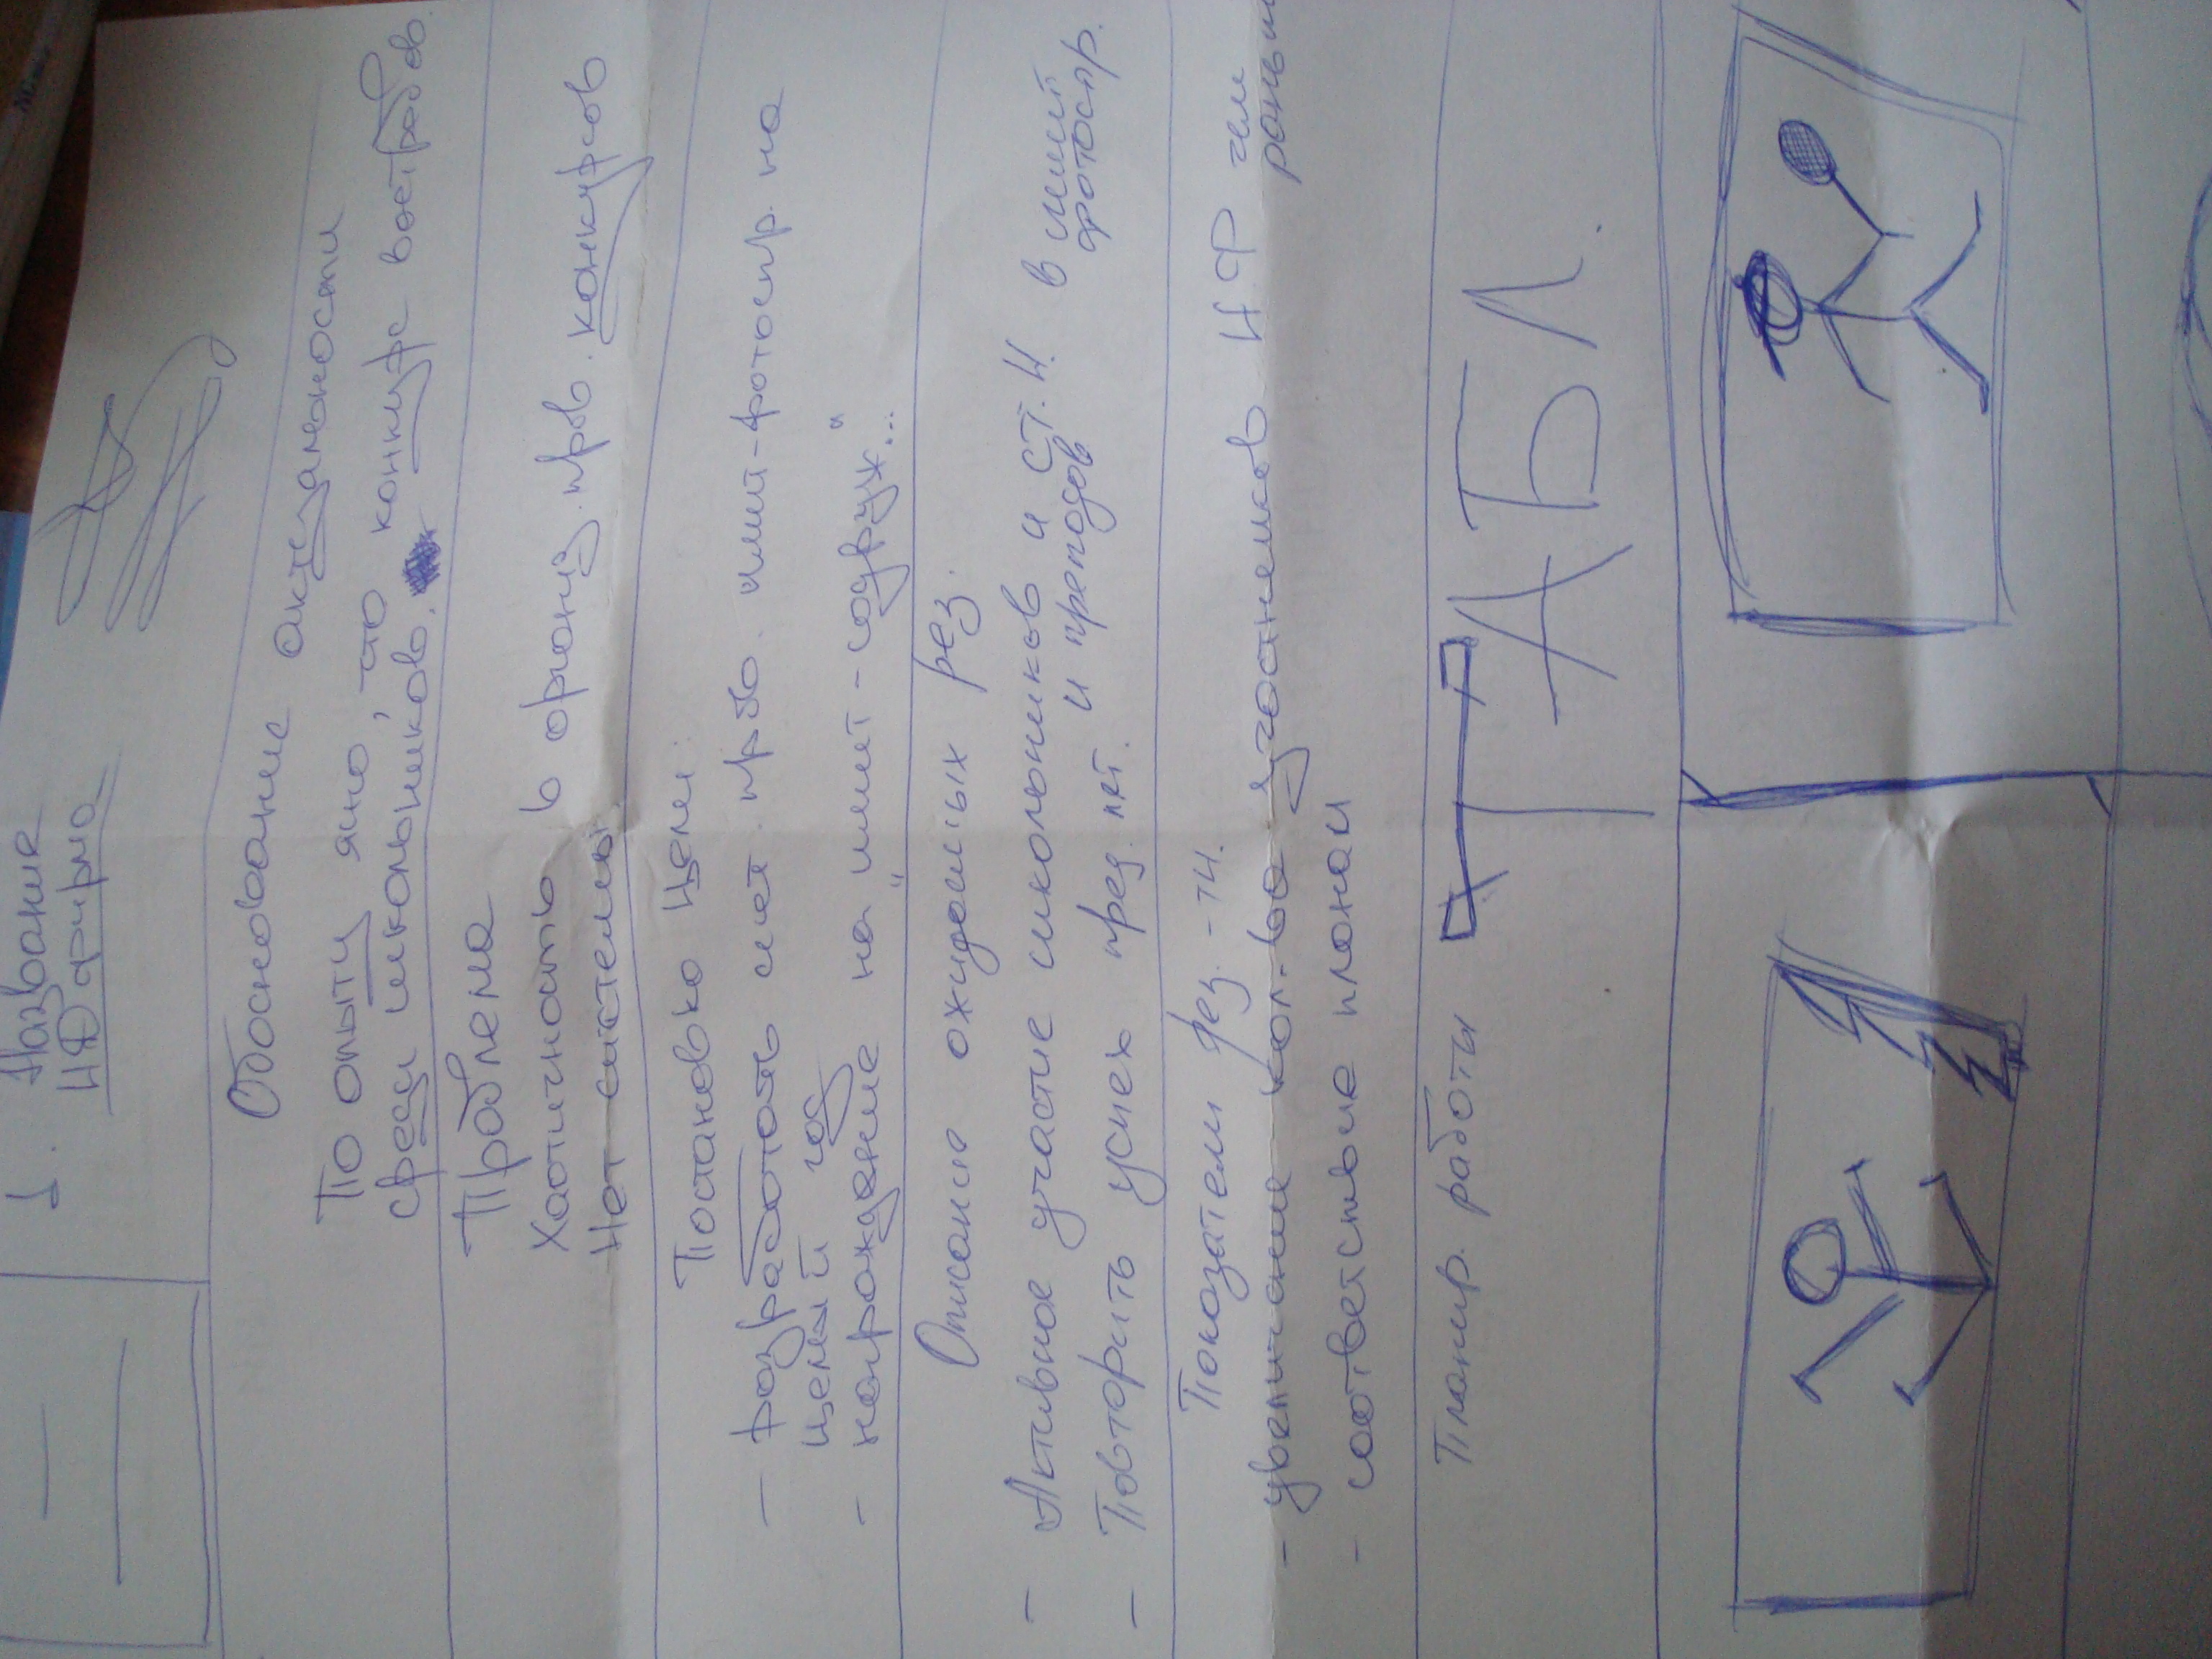 1. Название
НФ фирма
Обоснование актуальности
По опыту ясно, что конкурс востребов.
среди школьников.
Проблема
Хаотичность в организ. пров. конкурсов
Нет системы
Постановка цели:
- разработать сист. пров. имит-фотоспр. на
целый год
- награждение на "имит-содруж..."
Описание ожидаемых рез.
- Активное участие школьников и СТ. Н. в имит
фотоспр.
- Повторить успех пред. лет. и преподов
Показатели рез-ти.
- увеличение кол-ва участников НФ чем
раньше
- соответствие планам
Планир. работы ТАБЛ.